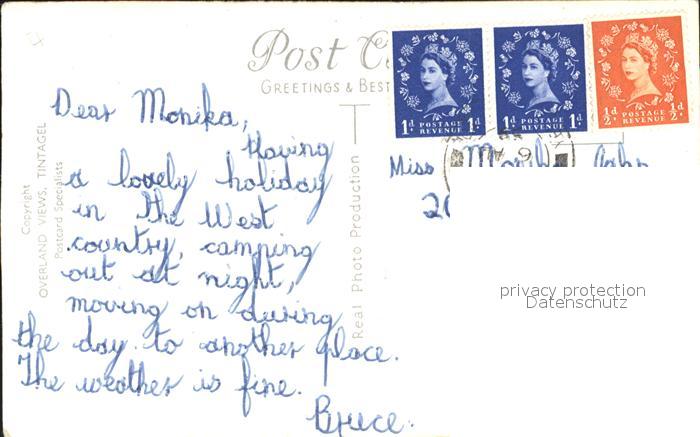 Post
GREETINGS & BEST
1d. POSTAGE REVENUE 1d.
1d. POSTAGE REVENUE 1d.
½d. POSTAGE REVENUE ½d.
Copyright
OVERLAND VIEWS, TINTAGEL
Postcard Specialists
Real Photo Production
Dear Monika,
Having
a lovely holiday
in the West
country, camping
out at night,
moving on during
the day to another place.
The weather is fine.
Bruce.
Miss
privacy protection
Datenschutz